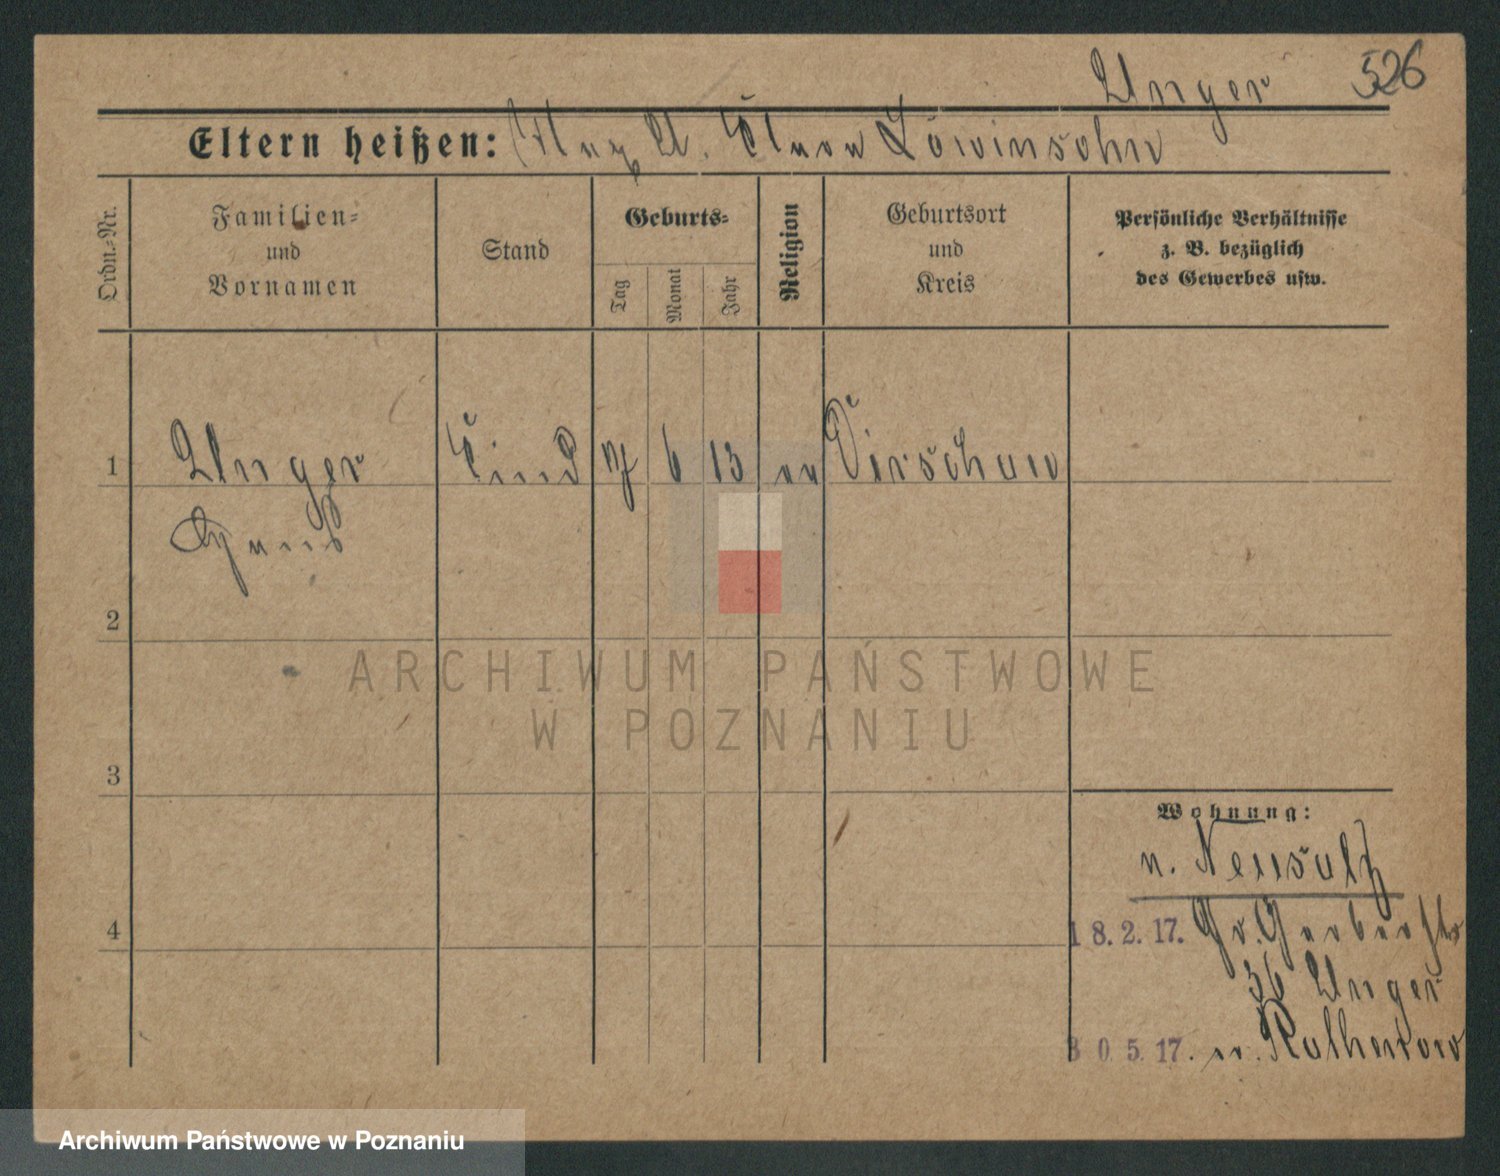 Unger 526
Eltern heißen: U. Löwinsohn
Ordn.-Nr.
Familien-
und
Vornamen
Stand
Geburts-
Tag
Monat
Jahr
Religion
Geburtsort
und
Kreis
Persönliche Verhältnisse
z. B. bezüglich
des Gewerbes usw.
1 Unger Kind 6 13 Dirschau
2
3
Wohnung:
n. Neusalz
4
18.2.17. Gr. Gerberstr
36 Unger
30.5.17. n. Rathenow
ARCHIWUM PAŃSTWOWE
W POZNANIU
Archiwum Państwowe w Poznaniu